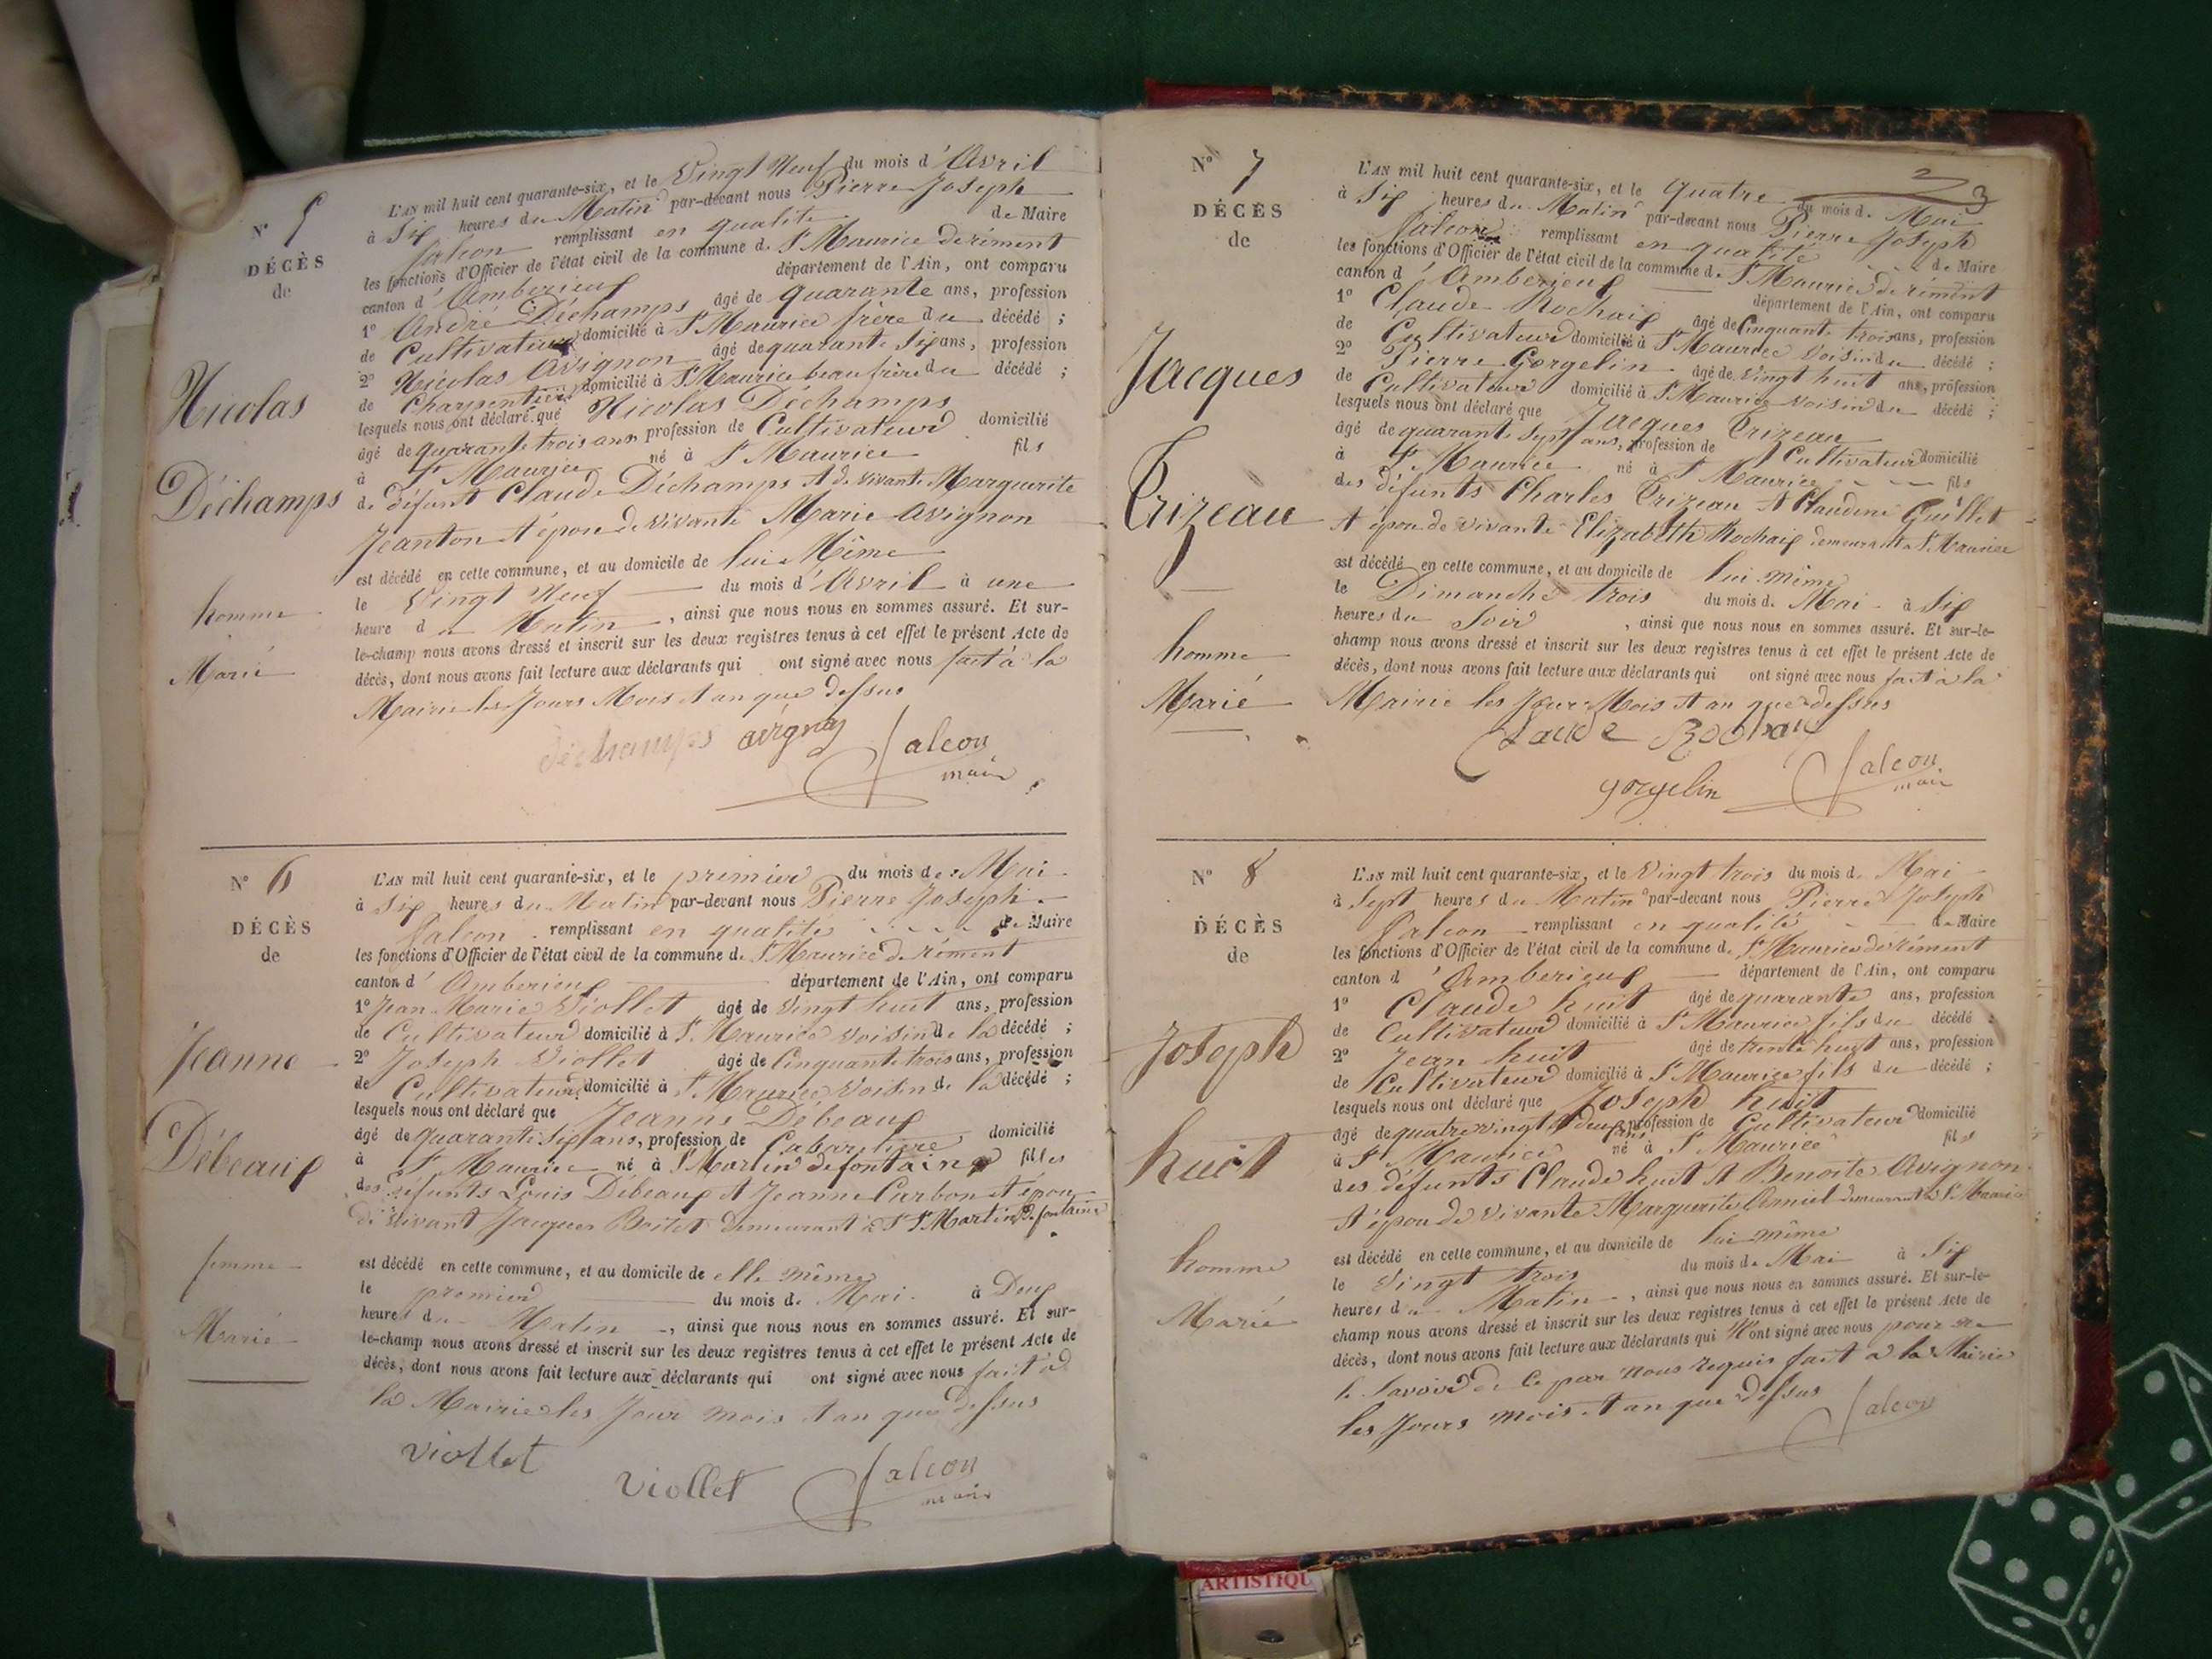 N° 5
DÉCÈS
de
Nicolas
Déchamps
homme
Marié
L'AN mil huit cent quarante-six, et le Vingt Neuf du mois d'Avril
à Six heures du Matin par-devant nous Pierre Joseph
falcon remplissant en qualité de Maire
les fonctions d'Officier de l'état civil de la commune de St Maurice de rément
canton d'Amberieux département de l'Ain, ont comparu
1° André Déchamps âgé de quarante ans, profession
de Cultivateur domicilié à St Maurice frère du décédé ;
2° Nicolas Avignon âgé de quarante Six ans, profession
de Charpentier domicilié à St Maurice beau frère du décédé ;
lesquels nous ont déclaré que Nicolas Déchamps
âgé de quarante trois ans profession de Cultivateur domicilié
à St Maurice né à St Maurice fils
de défunt Claude Déchamps et de vivante Marguerite
Jeanton et épou de vivante Marie Avignon
est décédé en cette commune, et au domicile de lui Même
le Vingt Neuf du mois d'Avril à une
heure du Matin, ainsi que nous nous en sommes assuré. Et sur-
le-champ nous avons dressé et inscrit sur les deux registres tenus à cet effet le présent Acte de
décès, dont nous avons fait lecture aux déclarants qui ont signé avec nous fait à la
Mairie les Jours Mois et an que dessus
déchamps avignon falcon
maire
N° 6
DÉCÈS
de
Jeanne
Débeaux
femme
Marié
L'AN mil huit cent quarante-six, et le premier du mois de Mai
à Six heures du Matin par-devant nous Pierre Joseph
falcon remplissant en qualité de Maire
les fonctions d'Officier de l'état civil de la commune de St Maurice de rément
canton d'Amberieux département de l'Ain, ont comparu
1° Jean Marie Viollet âgé de Vingt huit ans, profession
de Cultivateur domicilié à St Maurice voisin de la décédé ;
2° Joseph Viollet âgé de Cinquante trois ans, profession
de Cultivateur domicilié à St Maurice Voisin de la décédé ;
lesquels nous ont déclaré que Jeanne Débeaux
âgé de quarante Six ans, profession de Cabaretière domicilié
à St Maurice né à St Martin de fontaine filles
des défunts Louis Débeaux et Jeanne Carbon et épou
de vivant Jacques Boitet demeurant à St Martin de fontaine
est décédé en cette commune, et au domicile de elle même
le premier du mois de Mai à Deux
heures du Matin, ainsi que nous nous en sommes assuré. Et sur-
le-champ nous avons dressé et inscrit sur les deux registres tenus à cet effet le présent Acte de
décès, dont nous avons fait lecture aux déclarants qui ont signé avec nous fait à
la Mairie les Jour mois et an que dessus
viollet
viollet falcon
maire
3
N° 7
DÉCÈS
de
Jacques
Trizeau
homme
Marié
L'AN mil huit cent quarante-six, et le quatre du mois de Mai
à Six heures du Matin par-devant nous Pierre Joseph
falcon remplissant en qualité de Maire
les fonctions d'Officier de l'état civil de la commune de St Maurice de rément
canton d'Amberieux département de l'Ain, ont comparu
1° Claude Rochaix âgé de Cinquante trois ans, profession
de Cultivateur domicilié à St Maurice voisin du décédé ;
2° Pierre Gorgelin âgé de vingt huit ans, profession
de Cultivateur domicilié à St Maurice voisin du décédé ;
lesquels nous ont déclaré que Jacques Trizeau
âgé de quarante Sept ans, profession de Cultivateur domicilié
à St Maurice né à St Maurice fils
des défunts Charles Trizeau et Claudine Guillet
et épou de vivante Elizabeth Rochaix demeurant à St Maurice
est décédé en cette commune, et au domicile de lui même
le Dimanche trois du mois de Mai à Six
heures du Soir, ainsi que nous nous en sommes assuré. Et sur-le-
champ nous avons dressé et inscrit sur les deux registres tenus à cet effet le présent Acte de
décès, dont nous avons fait lecture aux déclarants qui ont signé avec nous fait à la
Mairie les Jour Mois et an que dessus
Claude Rochaix
gorgelin falcon
maire
N° 8
DÉCÈS
de
Joseph
huit
homme
Marié
L'AN mil huit cent quarante-six, et le Vingt trois du mois de Mai
à Sept heures du Matin par-devant nous Pierre Joseph
falcon remplissant en qualité de Maire
les fonctions d'Officier de l'état civil de la commune de St Maurice de rément
canton d'Amberieux département de l'Ain, ont comparu
1° Claude huit âgé de quarante ans, profession
de Cultivateur domicilié à St Maurice fils du décédé ;
2° Jean huit âgé de trente huit ans, profession
de Cultivateur domicilié à St Maurice fils du décédé ;
lesquels nous ont déclaré que Joseph huit
âgé de quatre vingt deux ans profession de Cultivateur domicilié
à St Maurice né à St Maurice fils
des défunts Claude huit et Benoite Avignon
et épou de vivante Marguerite demeurant à St Maurice
est décédé en cette commune, et au domicile de lui même
le Vingt trois du mois de Mai à Six
heures du Matin, ainsi que nous nous en sommes assuré. Et sur-le-
champ nous avons dressé et inscrit sur les deux registres tenus à cet effet le présent Acte de
décès, dont nous avons fait lecture aux déclarants qui N'ont signé avec nous pour ne
le Savoir de ce par nous requis fait à la Mairie
les Jours mois et an que dessus falcon
ARTISTIQU